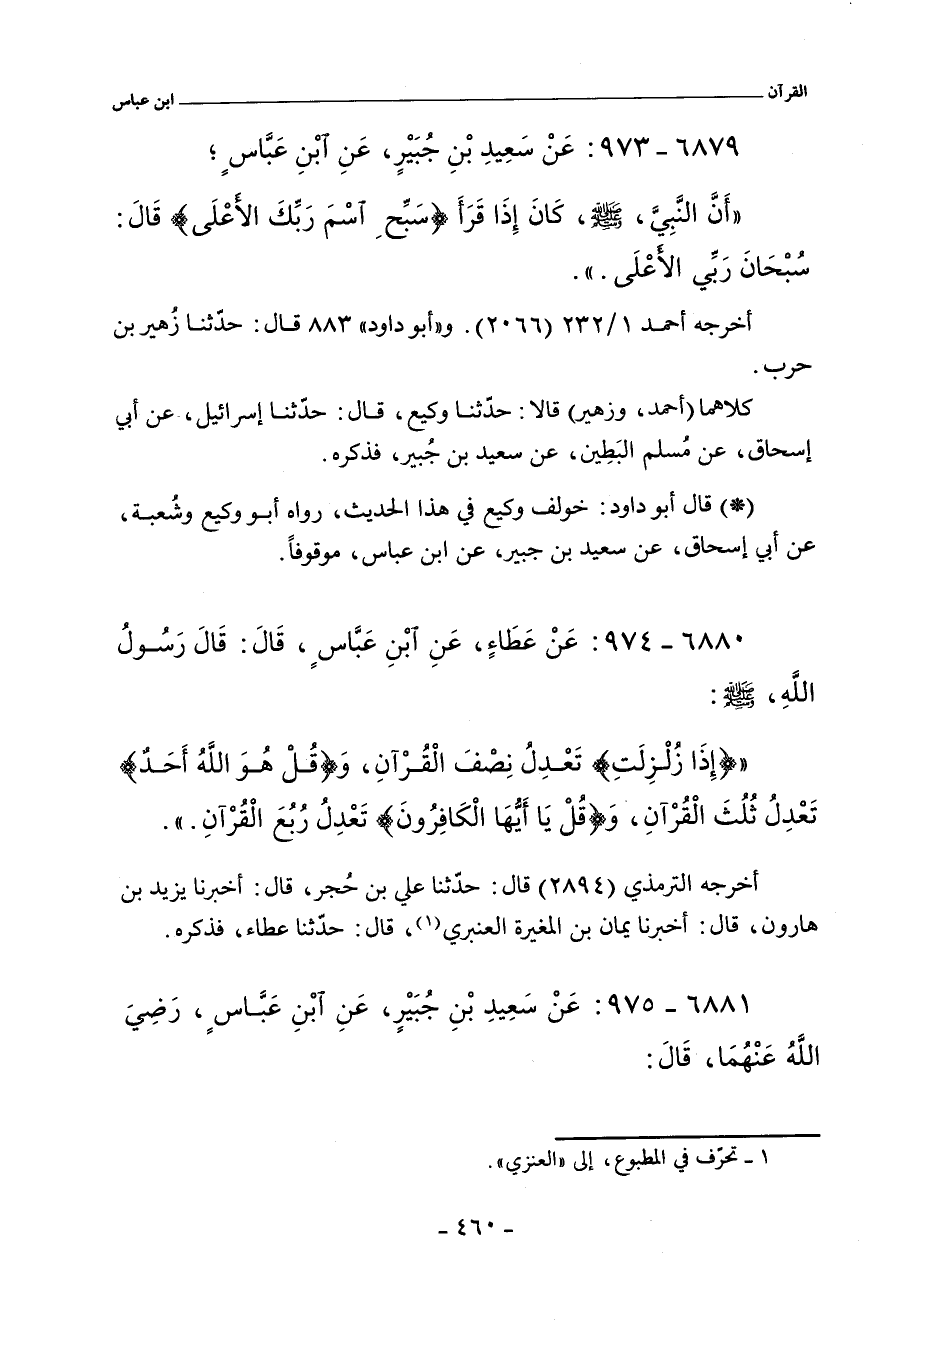 القرآن ابن عباس
٦٨٧٩ - ٩٧٣: عَنْ سَعِيدِ بْنِ جُبَيْرٍ، عَنِ ٱبْنِ عَبَّاسٍ؛
«أَنَّ النَّبِيَّ، ﷺ، كَانَ إِذَا قَرَأَ ﴿سَبِّحِ ٱسْمَ رَبِّكَ الأَعْلَى﴾ قَالَ:
سُبْحَانَ رَبِّي الأَعْلَى.».
أخرجه أحمد ٢٣٢/١ (٢٠٦٦). و«أبو داود» ٨٨٣ قال: حدّثنا زُهير بن
حرب.
كلاهما (أحمد، وزهير) قالا: حدّثنا وكيع، قال: حدّثنا إسرائيل، عن أبي
إسحاق، عن مُسلم البَطِين، عن سعيد بن جُبير، فذكره.
(*) قال أبو داود: خولف وكيع في هذا الحديث، رواه أبو وكيع وشُعبة،
عن أبي إسحاق، عن سعيد بن جبير، عن ابن عباس، موقوفاً.
٦٨٨٠ - ٩٧٤: عَنْ عَطَاءٍ، عَنِ ٱبْنِ عَبَّاسٍ، قَالَ: قَالَ رَسُولُ
اللَّهِ، ﷺ:
«﴿إِذَا زُلْزِلَتِ﴾ تَعْدِلُ نِصْفَ الْقُرْآنِ، وَ﴿قُلْ هُوَ اللَّهُ أَحَدٌ﴾
تَعْدِلُ ثُلُثَ الْقُرْآنِ، وَ﴿قُلْ يَا أَيُّهَا الْكَافِرُونَ﴾ تَعْدِلُ رُبُعَ الْقُرْآنِ.».
أخرجه الترمذي (٢٨٩٤) قال: حدّثنا علي بن حُجر، قال: أخبرنا يزيد بن
هارون، قال: أخبرنا يمان بن المغيرة العنبري(١)، قال: حدّثنا عطاء، فذكره.
٦٨٨١ - ٩٧٥: عَنْ سَعِيدِ بْنِ جُبَيْرٍ، عَنِ ٱبْنِ عَبَّاسٍ، رَضِيَ
اللَّهُ عَنْهُمَا، قَالَ:
١ - تحرّف في المطبوع، إلى «العنزي».
- ٤٦٠ -